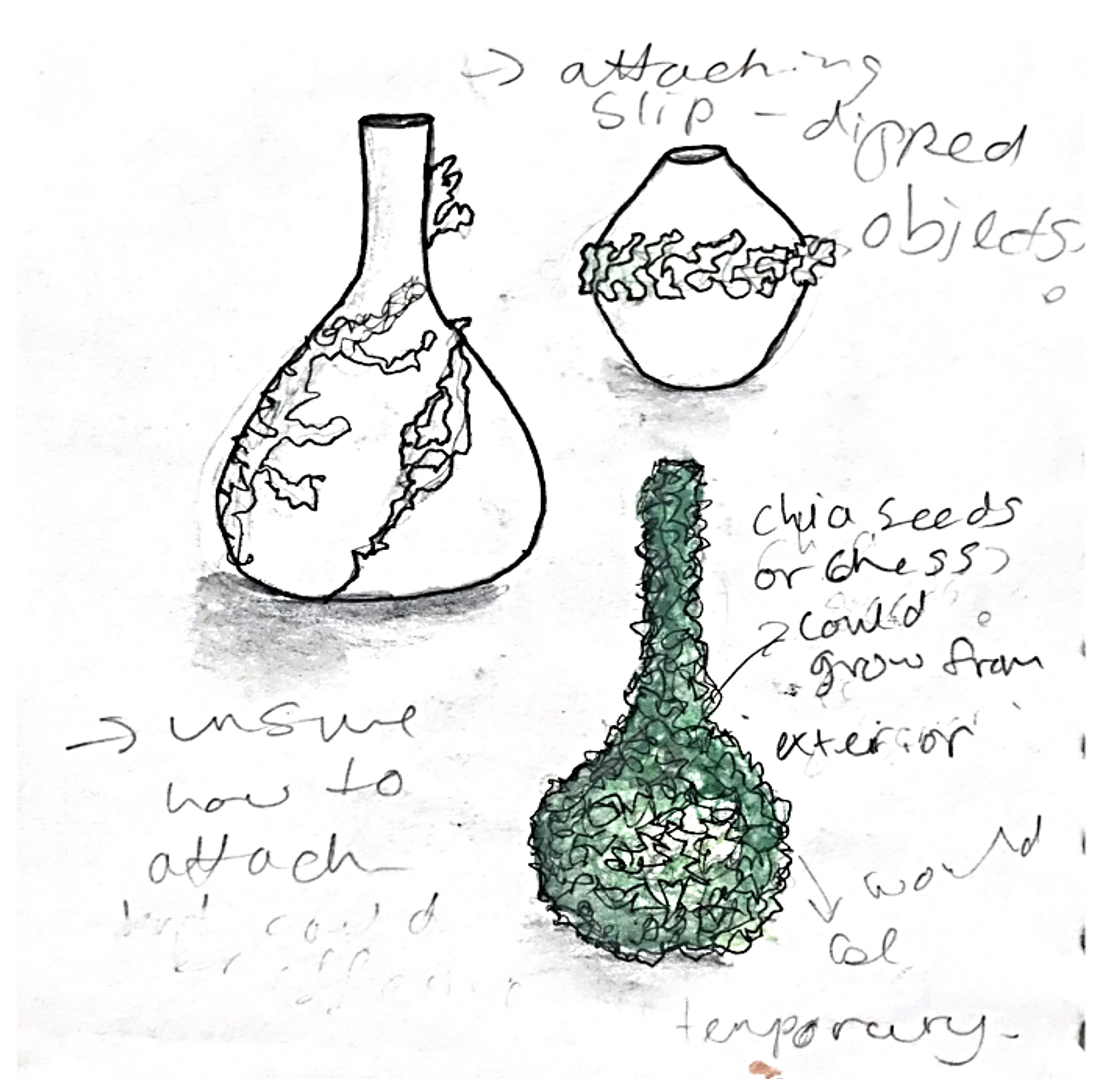 → attaching
slip - dipped
objects.
chia seeds
or chess
could
grow from
exterior
→ unsure
how to
attach
but could
would
temporary.